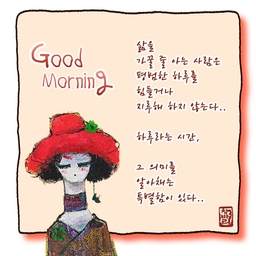 Good
Morning
삶을
가꿀 줄 아는 사람은
평범한 하루를
힘들거나
지루해 하지 않는다..
하루라는 시간,
그 의미를
알아채는
특별함이 있다..